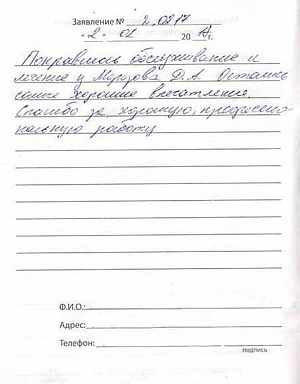 Заявление № 2.0217
"2" 01 2017г.
Понравилось обслуживание и
лечение у Морозова Д.А. Остались
самые хорошие впечатления.
Спасибо за хорошую, професси
нальную работу
Ф.И.О.:
Адрес:
Телефон:
подпись